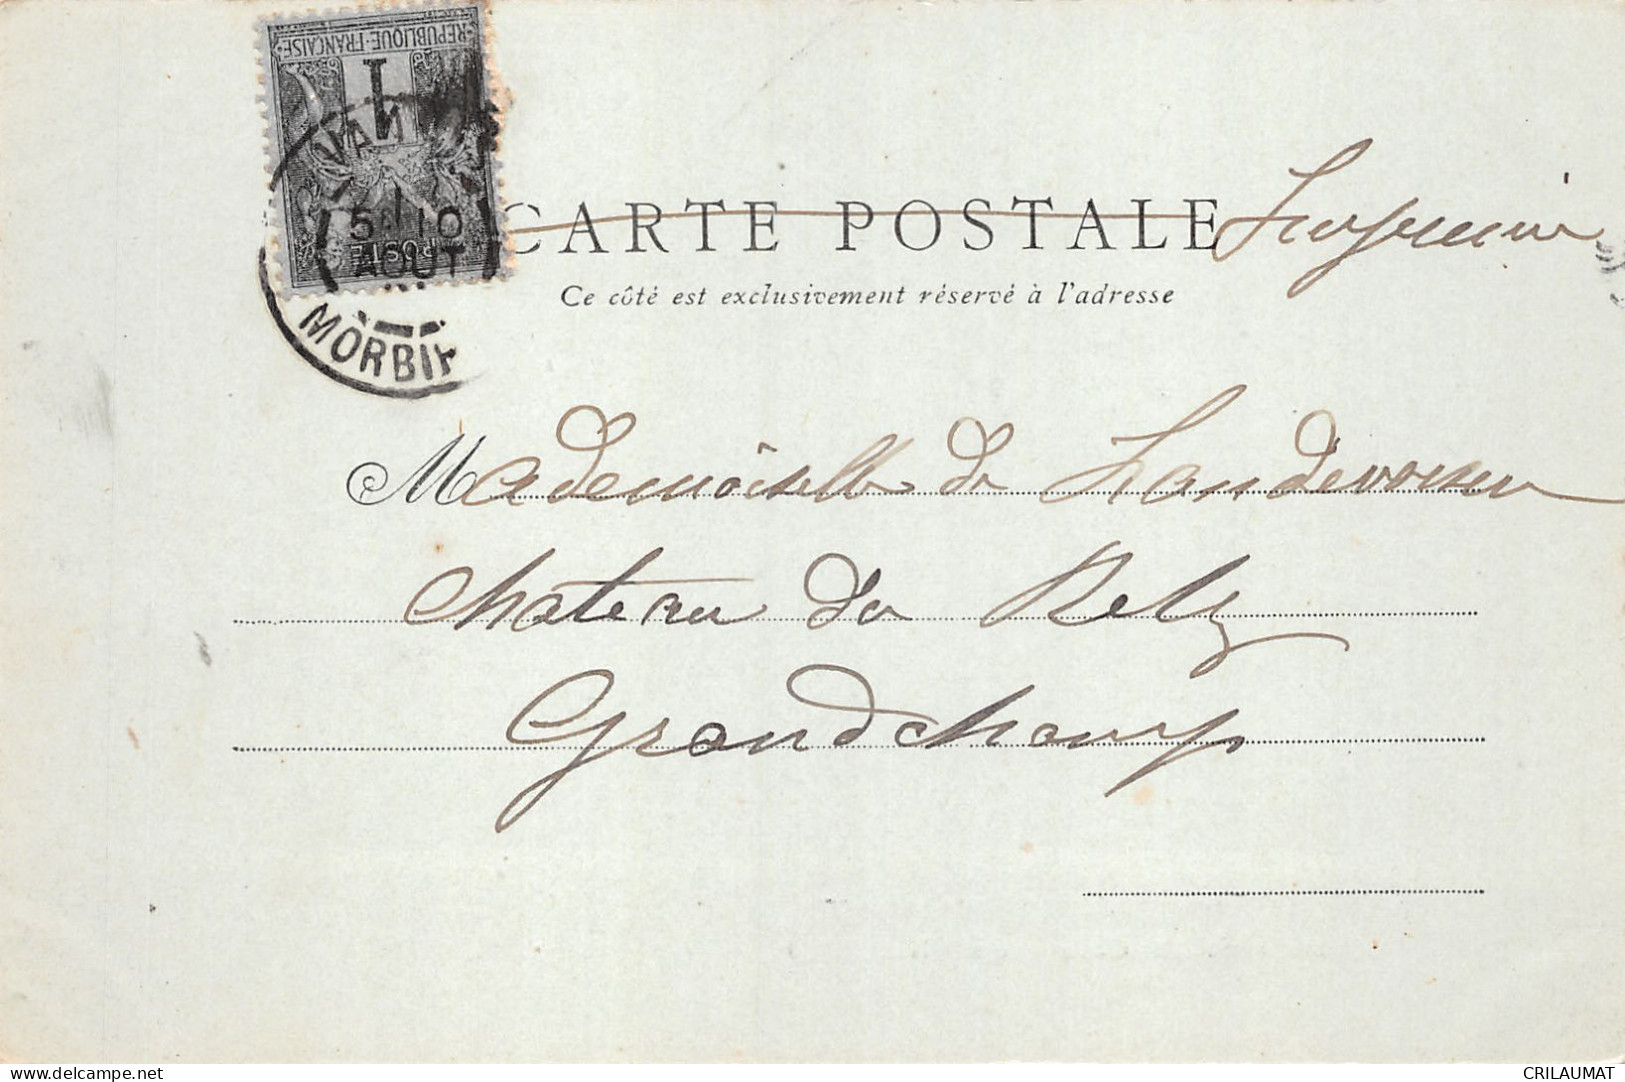 REPUBLIQUE FRANÇAISE
1
POSTE
VANNES
5E 10
AOUT
MORBIHAN
CARTE POSTALE
Ce côté est exclusivement réservé à l'adresse
Mademoiselle de
Chateau du Retz
Grandchamp
www.delcampe.net
CRILAUMAT